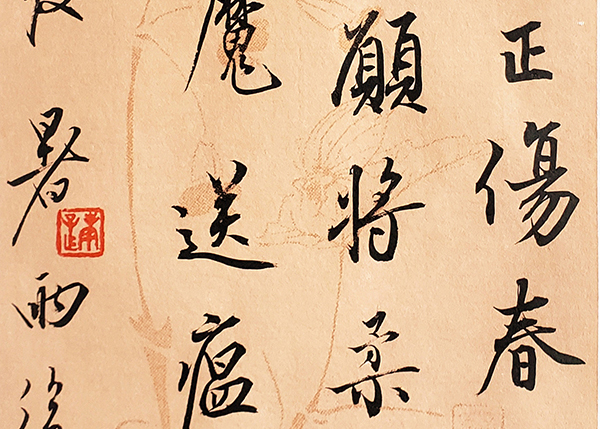 正傷春
願將柔
魔送瘟
暑雨後